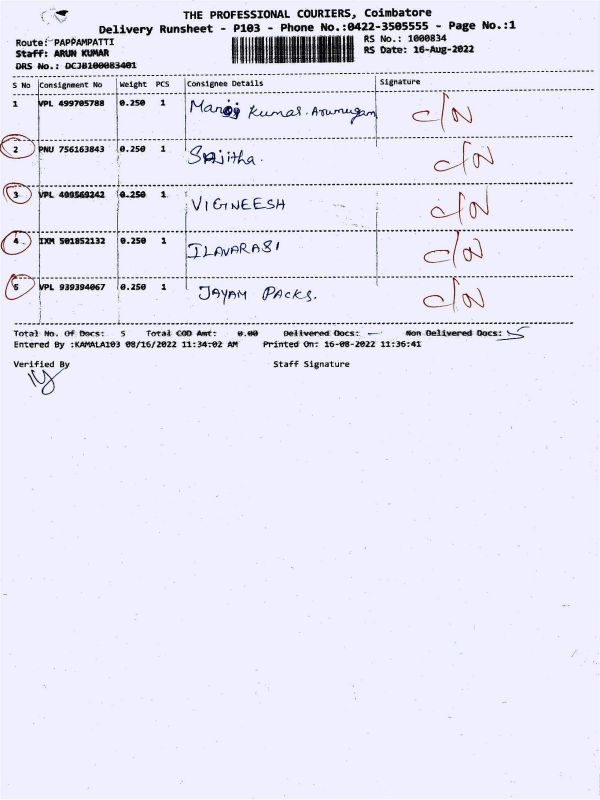 THE PROFESSIONAL COURIERS, Coimbatore
Delivery Runsheet - P103 - Phone No.:0422-3505555 - Page No.:1
Route: PAPPAMPATTI RS No.: 1000834
Staff: ARUN KUMAR RS Date: 16-Aug-2022
DRS No.: DCJB100083401
S No Consignment No Weight PCS Consignee Details Signature
1 VPL 499705788 0.250 1 Manoj Kumar. Arumugam C/N
2 PNU 756163843 0.250 1 Srijitha. C/N
3 VPL 499569242 0.250 1 VIGNEESH C/N
4 IXM 501852132 0.250 1 ILAVARASI C/N
5 VPL 939394067 0.250 1 JAYAM PACKS. C/N
Total No. Of Docs: 5 Total COD Amt: 0.00 Delivered Docs: — Non Delivered Docs: 5
Entered By :KAMALA103 08/16/2022 11:34:02 AM Printed On: 16-08-2022 11:36:41
Verified By Staff Signature